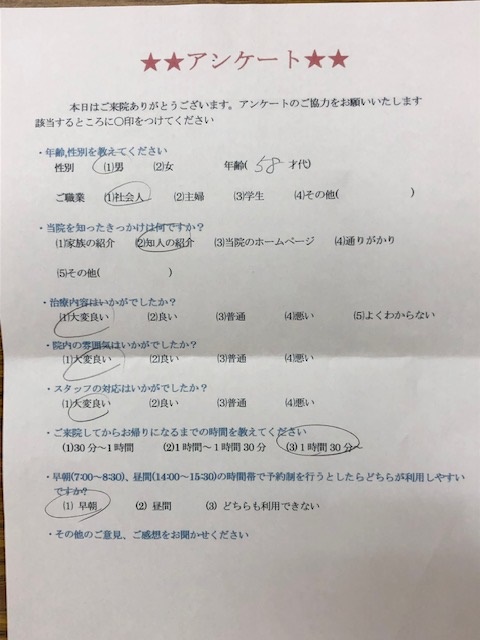 ★★アンケート★★
本日はご来院ありがとうございます。アンケートのご協力をお願いいたします
該当するところに〇印をつけてください
・年齢,性別を教えてください
性別 (1)男 (2)女 年齢( 58 才代)
ご職業 (1)社会人 (2)主婦 (3)学生 (4)その他( )
・当院を知ったきっかけは何ですか？
(1)家族の紹介 (2)知人の紹介 (3)当院のホームページ (4)通りがかり
(5)その他( )
・治療内容はいかがでしたか？
(1)大変良い (2)良い (3)普通 (4)悪い (5)よくわからない
・院内の雰囲気はいかがでしたか？
(1)大変良い (2)良い (3)普通 (4)悪い
・スタッフの対応はいかがでしたか？
(1)大変良い (2)良い (3)普通 (4)悪い
・ご来院してからお帰りになるまでの時間を教えてください
(1)30分～1時間 (2)1時間～1時間30分 (3)1時間30分～
・早朝(7:00～8:30)、昼間(14:00～15:30)の時間帯で予約制を行うとしたらどちらが利用しやすい
ですか?
(1) 早朝 (2) 昼間 (3) どちらも利用できない
・その他のご意見、ご感想をお聞かせください